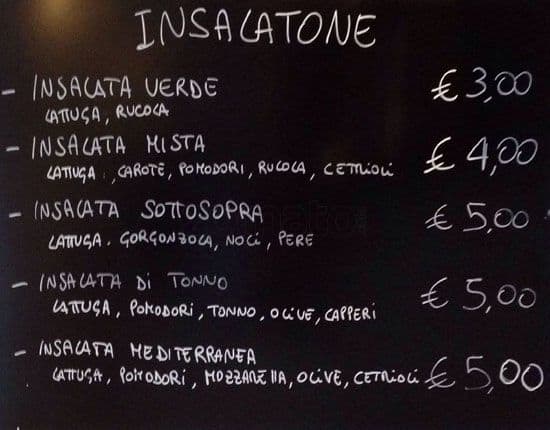 INSALATONE
- INSALATA VERDE € 3,00
LATTUGA, RUCOLA
- INSALATA MISTA € 4,00
LATTUGA, CAROTE, POMODORI, RUCOLA, CETRIOLI
- INSALATA SOTTOSOPRA € 5,00
LATTUGA. GORGONZOLA, NOCI, PERE
- INSALATA DI TONNO € 5,00
LATTUGA, POMODORI, TONNO, OLIVE, CAPPERI
- INSALATA MEDITERRANEA
LATTUGA, POMODORI, MOZZARELLA, OLIVE, CETRIOLI € 5,00